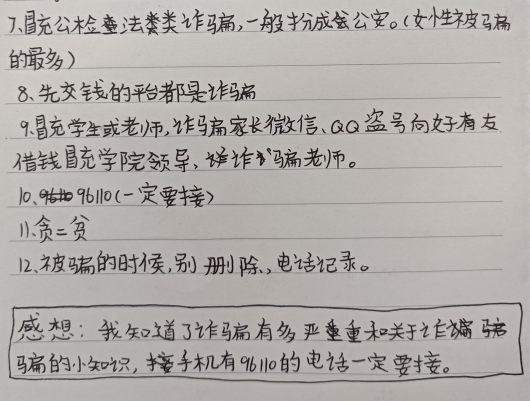 7.冒充公检查法类诈骗,一般扮成公安。(女性被骗
的最多)
8、先交钱的平台都是诈骗
9.冒充学生或老师,诈骗家长微信、QQ盗号向好友
借钱冒充学院领导,诈骗老师。
10、96110(一定要接)
11.贪=贫
12、被骗的时候,别删除、电话记录。
感想:我知道了诈骗有多严重和关于诈
骗的小知识,手机有96110的电话一定要接。